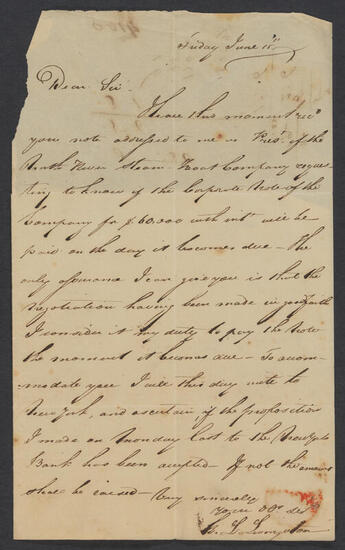 Friday June 15th
Dear Sir
I have this moment recd
your note addressed to me as Prest. of the
North River Steam Boat Company reques
ting to know if the Corporate Note of the
Company for $60.000 with intt will be
paid on the day it becomes due – The
only assurance I can give you is that the
negotiation having been made in good faith
I consider it my duty to pay the Note
the moment it becomes due – To accom
modate you I will this day write to
New York, and ascertain if the proposition
I made on Monday last to the
Bank has been accepted – If not the amount
shall be raised – Very sincerely
Your